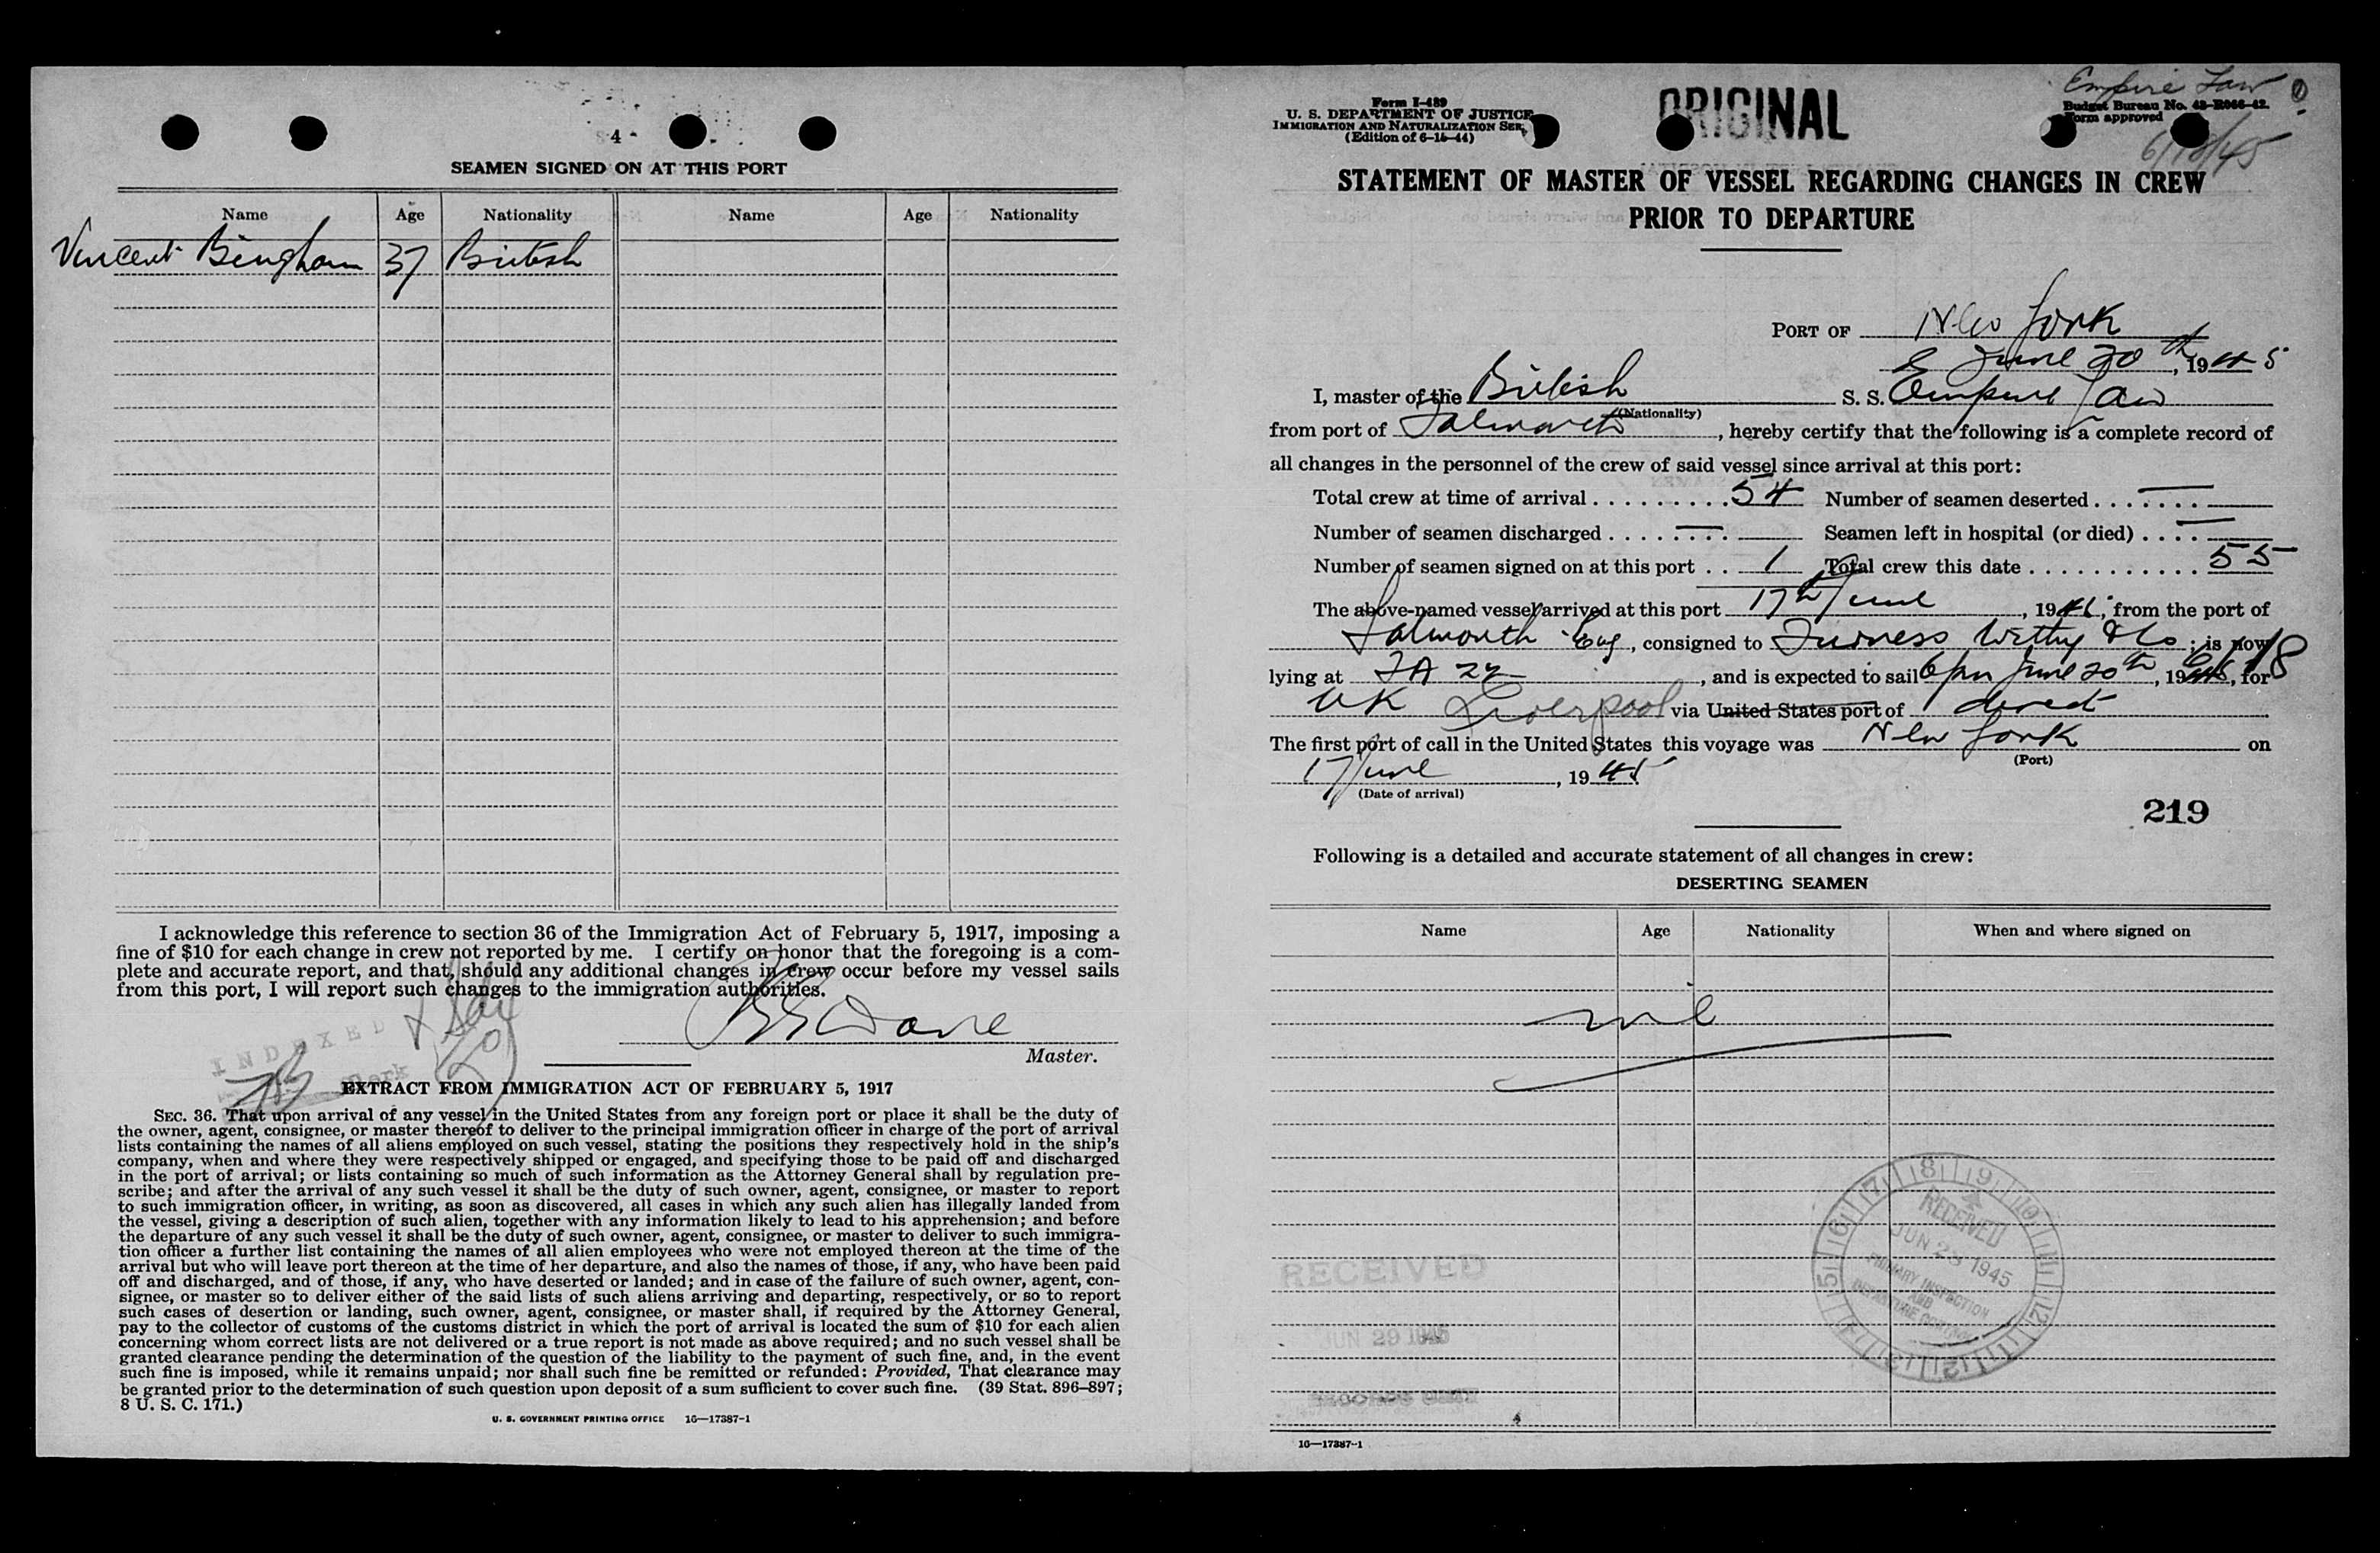 4
SEAMEN SIGNED ON AT THIS PORT
Name Age Nationality Name Age Nationality
Vincent Bingham 37 British
I acknowledge this reference to section 36 of the Immigration Act of February 5, 1917, imposing a
fine of $10 for each change in crew not reported by me. I certify on honor that the foregoing is a com-
plete and accurate report, and that, should any additional changes in crew occur before my vessel sails
from this port, I will report such changes to the immigration authorities.
INDEXED
Master.
EXTRACT FROM IMMIGRATION ACT OF FEBRUARY 5, 1917
SEC. 36. That upon arrival of any vessel in the United States from any foreign port or place it shall be the duty of
the owner, agent, consignee, or master thereof to deliver to the principal immigration officer in charge of the port of arrival
lists containing the names of all aliens employed on such vessel, stating the positions they respectively hold in the ship's
company, when and where they were respectively shipped or engaged, and specifying those to be paid off and discharged
in the port of arrival; or lists containing so much of such information as the Attorney General shall by regulation pre-
scribe; and after the arrival of any such vessel it shall be the duty of such owner, agent, consignee, or master to report
to such immigration officer, in writing, as soon as discovered, all cases in which any such alien has illegally landed from
the vessel, giving a description of such alien, together with any information likely to lead to his apprehension; and before
the departure of any such vessel it shall be the duty of such owner, agent, consignee, or master to deliver to such immigra-
tion officer a further list containing the names of all alien employees who were not employed thereon at the time of the
arrival but who will leave port thereon at the time of her departure, and also the names of those, if any, who have been paid
off and discharged, and of those, if any, who have deserted or landed; and in case of the failure of such owner, agent, con-
signee, or master so to deliver either of the said lists of such aliens arriving and departing, respectively, or so to report
such cases of desertion or landing, such owner, agent, consignee, or master shall, if required by the Attorney General,
pay to the collector of customs of the customs district in which the port of arrival is located the sum of $10 for each alien
concerning whom correct lists are not delivered or a true report is not made as above required; and no such vessel shall be
granted clearance pending the determination of the question of the liability to the payment of such fine, and, in the event
such fine is imposed, while it remains unpaid; nor shall such fine be remitted or refunded: Provided, That clearance may
be granted prior to the determination of such question upon deposit of a sum sufficient to cover such fine. (39 Stat. 896–897;
8 U. S. C. 171.)
U. S. GOVERNMENT PRINTING OFFICE 16—17387-1
Form I-489
U. S. DEPARTMENT OF JUSTICE
IMMIGRATION AND NATURALIZATION SER.
(Edition of 6-15-44)
ORIGINAL
Empire
Budget Bureau No. 43-R066-42.
Form approved
6/18/45
STATEMENT OF MASTER OF VESSEL REGARDING CHANGES IN CREW
PRIOR TO DEPARTURE
PORT OF New York
June 20th, 1945
I, master of the British S. S. Empire
(Nationality)
from port of Falmouth, hereby certify that the following is a complete record of
all changes in the personnel of the crew of said vessel since arrival at this port:
Total crew at time of arrival 54 Number of seamen deserted —
Number of seamen discharged — Seamen left in hospital (or died) —
Number of seamen signed on at this port 1 Total crew this date 55
The above-named vessel arrived at this port 17th June, 1945, from the port of
Falmouth Eng, consigned to Furness Withy & Co; is now
lying at , and is expected to sail 6 pm June 20th, 1945, for
UK Liverpool via United States port of direct
The first port of call in the United States this voyage was New York on
(Port)
17 June, 1945
(Date of arrival)
219
Following is a detailed and accurate statement of all changes in crew:
DESERTING SEAMEN
Name Age Nationality When and where signed on
nil
RECEIVED
JUN 29 1945
RECEIVED
JUN 23 1945
PRIMARY INSPECTION
AND
DEPARTURE CONTROL
16—17387-1